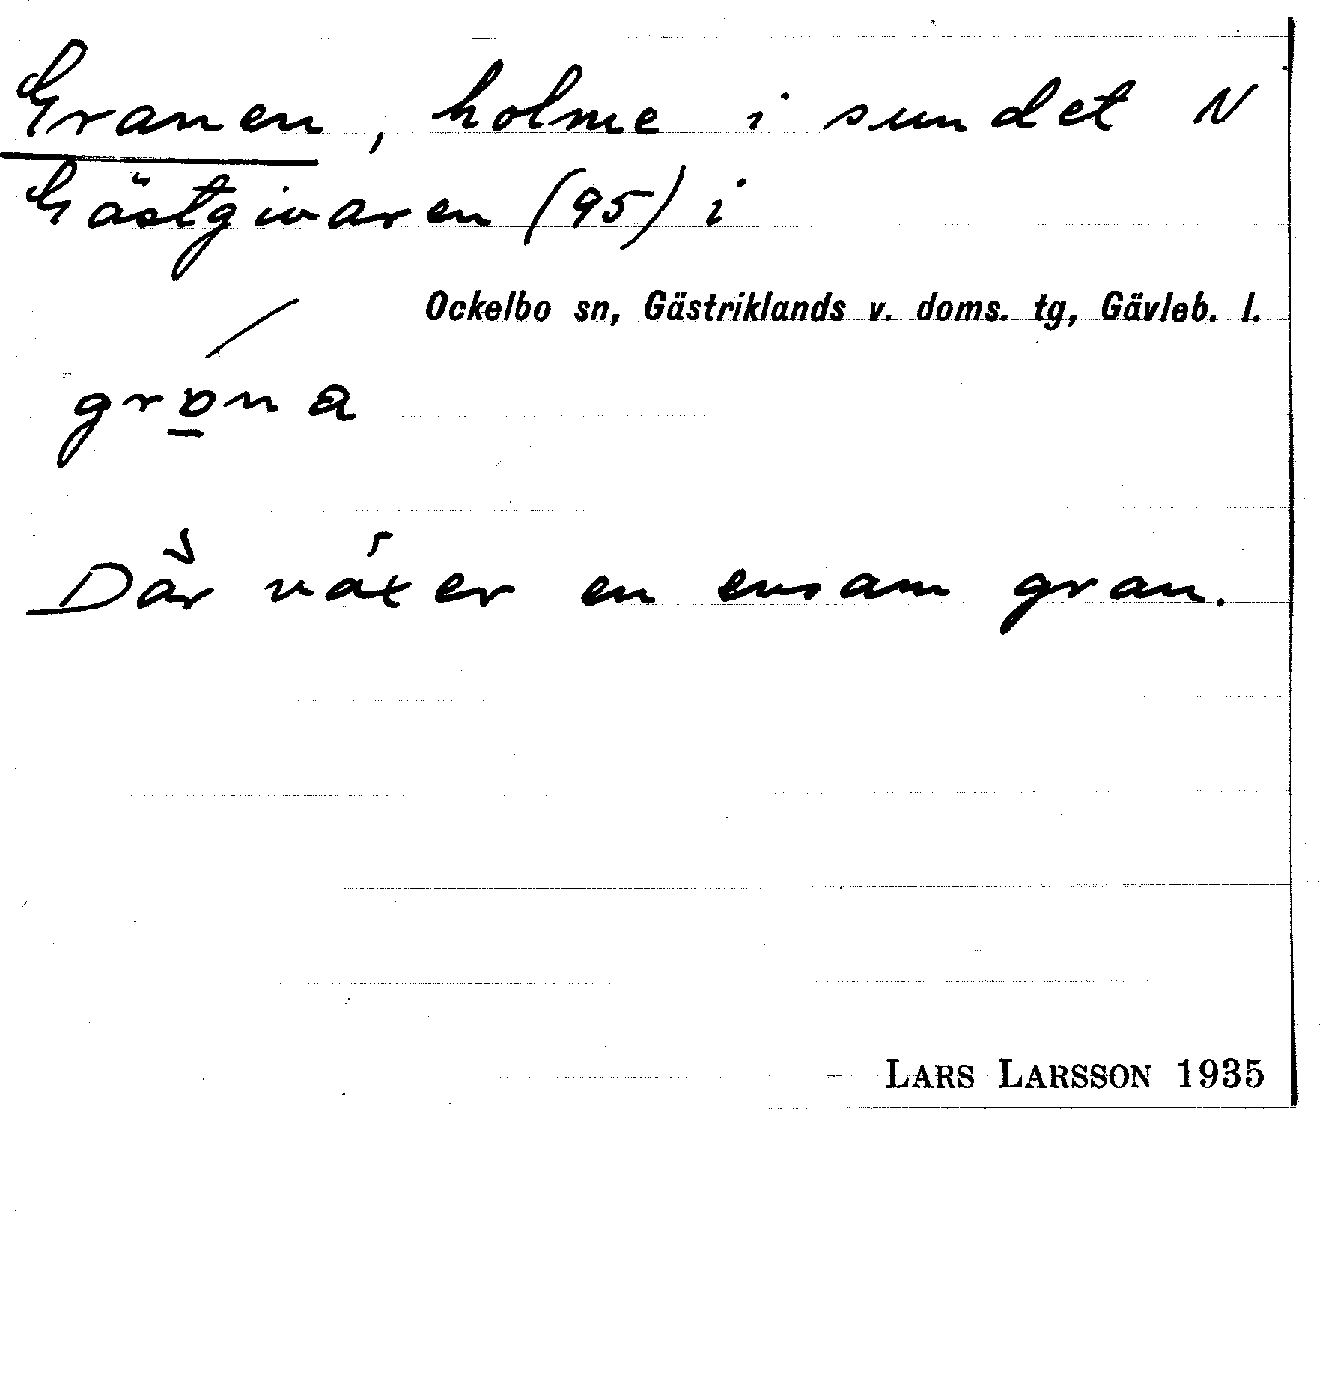 Granen, holme i sundet N
Gästgivaren (95) i
Ockelbo sn, Gästriklands v. doms. tg, Gävleb. l.
grɒna
Där växer en ensam gran.
LARS LARSSON 1935